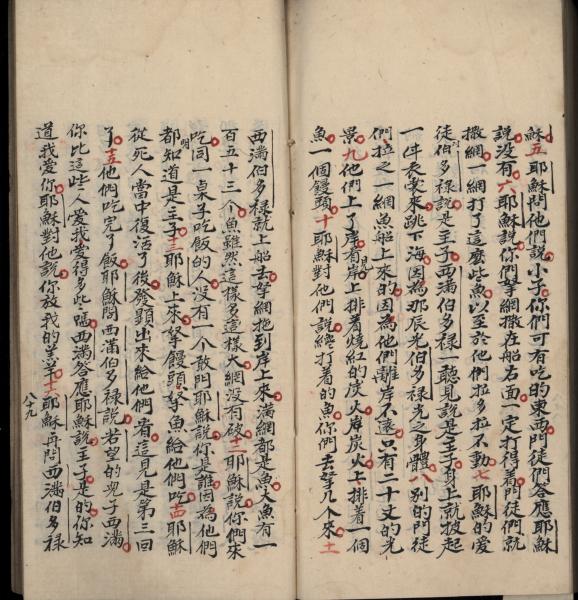 穌五耶穌問他們說小子你們可有吃的東西門徒們答應耶穌
說没有六耶穌說你們孥網撒在船右面一定打得着門徒們就
撒網一網打了這麼些魚以至於他們拉多拉不動七耶穌的愛
徒伯多禄說是主子西滿伯多禄一聽見說是主子身上就披起
一件衣裳來跳下海因為那辰光伯多禄光之身體八别的門徒
們拉之一網魚船上來的因為他們離岸不遠只有二十丈的光
景九他們上了岸看見岸上排着燒紅的炭火岸炭火上排着一個
魚一個饅頭十耶穌對他們說纔打着的魚你們去孥几个來十一
西滿伯多禄就上船去孥網拖到岸上來滿網都是魚大魚有一
百五十三个魚雖然這樣多這樣大網没有破十二耶穌說你們來
吃同一桌子吃飯的人没有一个敢問耶穌說你是誰因為他們
都明知道是主子十三耶穌上來孥饅頭孥魚給他們吃十四耶穌
從死人當中復活了後發顯出來給他們看這見是第三回
了十五他們吃完了飯耶穌問西滿伯多禄說若望的兒子西滿
你比這些人愛我愛得多些嗎西滿答應耶穌說主子是的你知
道我愛你耶穌對他說你放我的羔羊十六耶穌再問西滿伯多禄
八十九